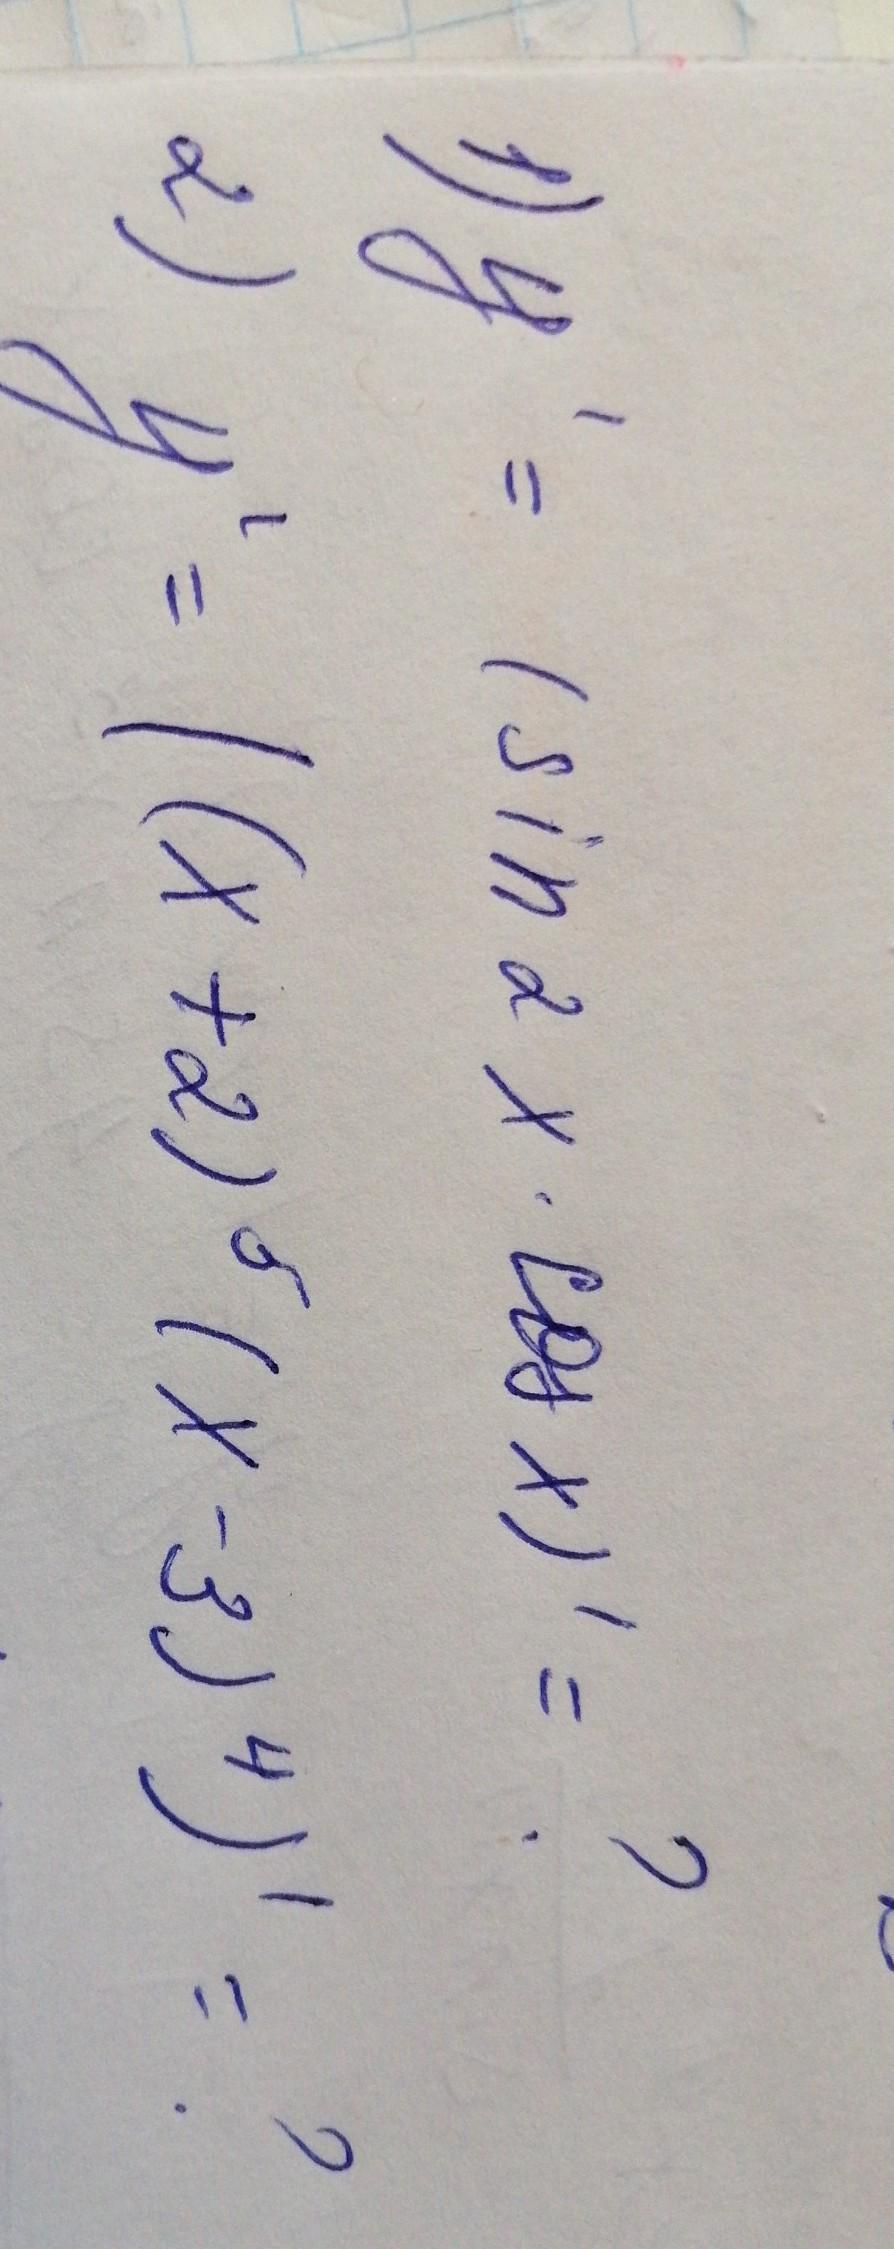 1) y' = (sin 2x · cos x)' = ?
2) y' = ((x+2)⁵(x-3)⁴)' = ?